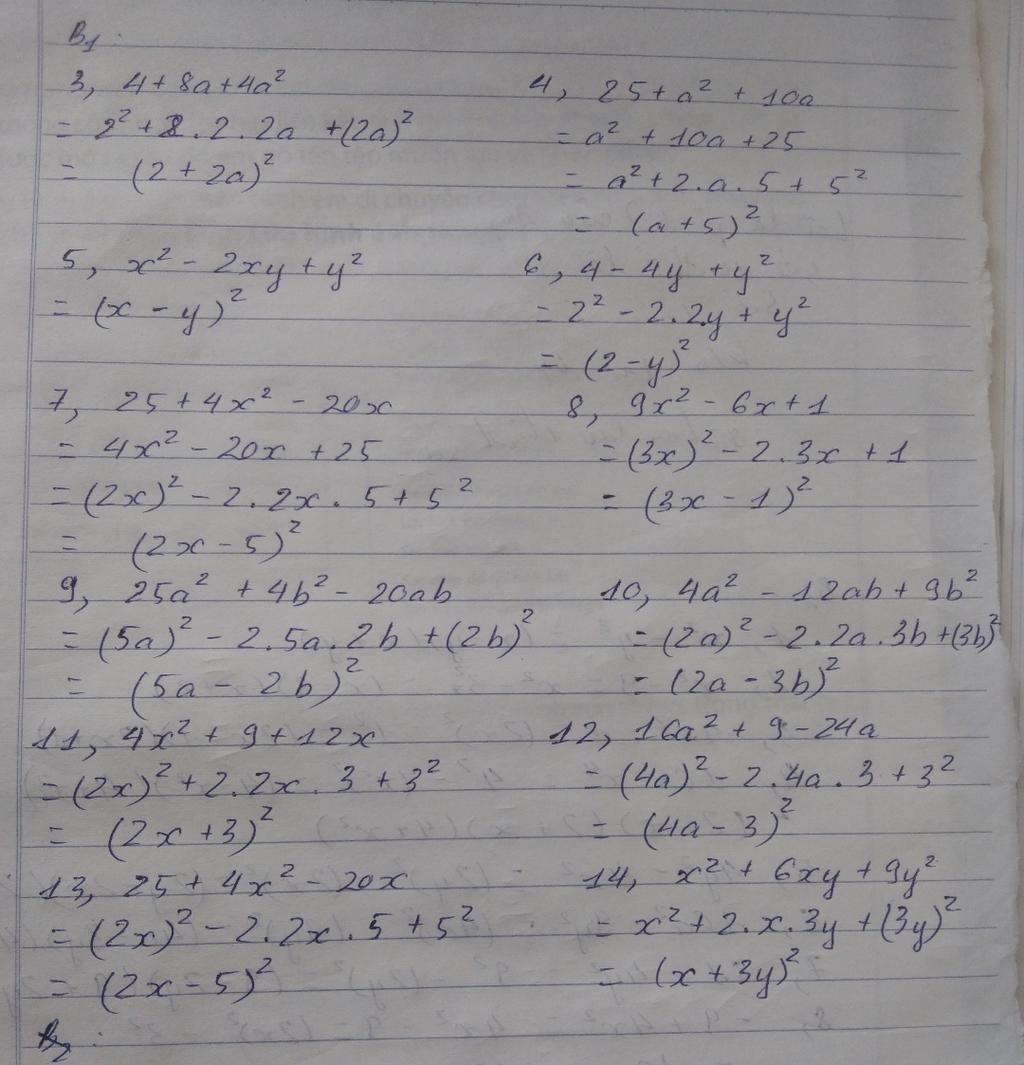 B₁:
3, 4 + 8a + 4a²
= 2² + 2.2.2a + (2a)²
= (2 + 2a)²
4, 25 + a² + 10a
= a² + 10a + 25
= a² + 2.a.5 + 5²
= (a + 5)²
5, x² - 2xy + y²
= (x - y)²
6, 4 - 4y + y²
= 2² - 2.2y + y²
= (2 - y)²
7, 25 + 4x² - 20x
= 4x² - 20x + 25
= (2x)² - 2.2x.5 + 5²
= (2x - 5)²
8, 9x² - 6x + 1
= (3x)² - 2.3x + 1
= (3x - 1)²
9, 25a² + 4b² - 20ab
= (5a)² - 2.5a.2b + (2b)²
= (5a - 2b)²
10, 4a² - 12ab + 9b²
= (2a)² - 2.2a.3b + (3b)²
= (2a - 3b)²
11, 4x² + 9 + 12x
= (2x)² + 2.2x.3 + 3²
= (2x + 3)²
12, 16a² + 9 - 24a
= (4a)² - 2.4a.3 + 3²
= (4a - 3)²
13, 25 + 4x² - 20x
= (2x)² - 2.2x.5 + 5²
= (2x - 5)²
14, x² + 6xy + 9y²
= x² + 2.x.3y + (3y)²
= (x + 3y)²
B₂: